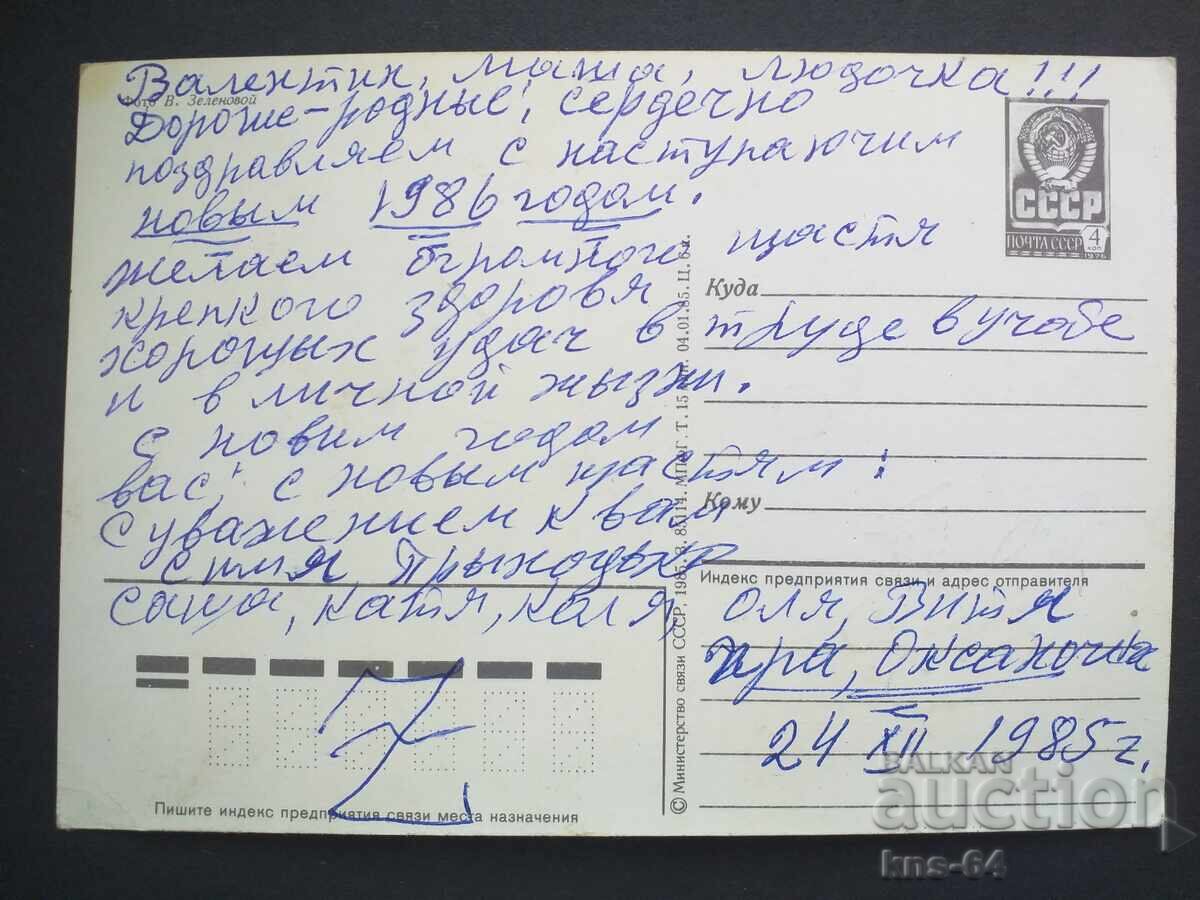 Валентин, Маша, Людочка!!!
Фото В. Зеленовой
Дорогие-родные, сердечно
поздравляем с наступаючим
новым 1986 годом.
желаем огромного щастя
крепкого здоровя
хорошых удач в труде в учобе
и в личной жызни.
с новим годам
вас, с новым щастям!
С уважением к вам
семя Прыходько
Саша, Катя, Коля, Оля, Витя
Ира, Оксаночка
24 XII 1985 г.
СССР
ПОЧТА СССР 4 коп
1976
Куда
Кому
Индекс предприятия связи и адрес отправителя
Пишите индекс предприятия связи места назначения
© Министерство связи СССР, 1985. З. 85114. МПФГ. Т. 15 04.01.85. Ц. 6 к.
BALKAN
auction
kns-64